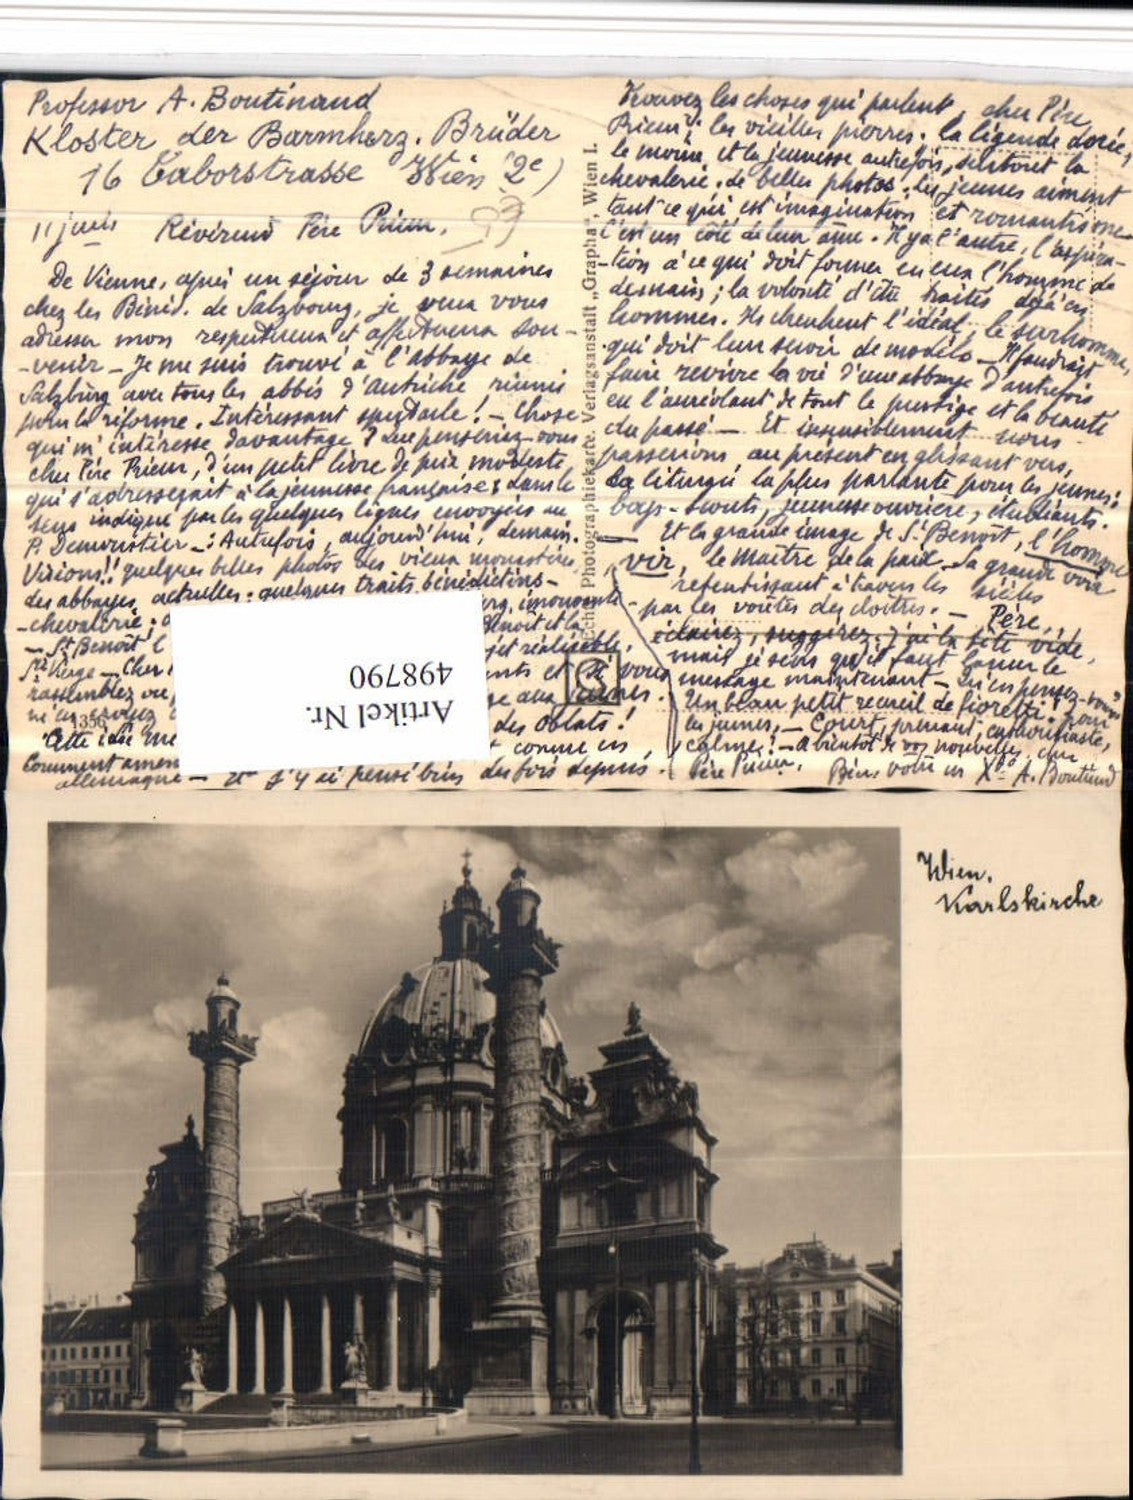 Professor A. Boutinaud
Kloster der Barmherz. Brüder
16 Taborstrasse Wien 2e)
11 juin Révérend Père Prieur,
De Vienne, après un séjour de 3 semaines
chez les Bénéd. de Salzbourg, je veux vous
adresser mon respectueux et affectueux sou-
-venir - Je me suis trouvé à l'abbaye de
Salzburg avec tous les abbés d'Autriche réunis
pour la réforme. Intéressant spectacle! - Chose
qui m'intéresse davantage? Que penseriez-vous
cher Père Prieur, d'un petit livre de prix modeste
qui s'adresserait à la jeunesse française; dans le
sens indiqué par les quelques lignes envoyées au
P. Demoustier -: Autrefois, aujourd'hui, demain.
Visions!! quelques belles photos des vieux monastères,
des abbayes actuelles; quelques traits bénédictins -
-chevalerie:
- St Benoît l
Ste Vierge - Cher
rassemblez
ne
Cette idée me
Comment amen
allemagne - et j'y ai pensé bien des fois depuis.
Benoît et la
et réalisable,
et si vous
aux jeunes.
des Oblats!
connue en
Trouvez les choses qui parlent, cher Père
Prieur; les vieilles pierres. la légende dorée,
le moine et la jeunesse autrefois, surtout la
chevalerie. de belles photos. les jeunes aiment
tant ce qui est imagination et romantisme
C'est un côté de leur âme. Il y a l'autre, l'aspira-
-tion à ce qui doit former en eux l'homme de
demain; la volonté d'être traités déjà en
hommes. Ils cherchent l'idéal, le surhomme,
qui doit leur servir de modèle - Il faudrait
faire revivre la vie d'une abbaye d'autrefois
en l'auréolant de tout le prestige et la beauté
du passé - Et insensiblement nous
passerions au présent en glissant vers,
La liturgie la plus parlante pour les jeunes:
boys-scouts, jeunesse ouvrière, étudiants.
- Et la grande image de St Benoît, l'homme
vir, le Maître de la paix. Sa grande voix
retentissant à travers les siècles
par les voûtes des cloîtres. - Père,
éclairez, suggérez. j'ai la tête vide,
mais je sens qu'il faut lancer le
message maintenant - Qu'en pensez-vous
Un beau petit recueil de fioretti. pour
les jeunes, - Court, prenant, enthousiaste,
calme! - A bientôt de vos nouvelles, cher
Père Prieur. Bien vôtre en Xto A. Boutinaud
Photographiekarte. Verlagsanstalt „Grapha“, Wien I.
Echte
1356
Artikel Nr.
498790
Wien.
Karlskirche